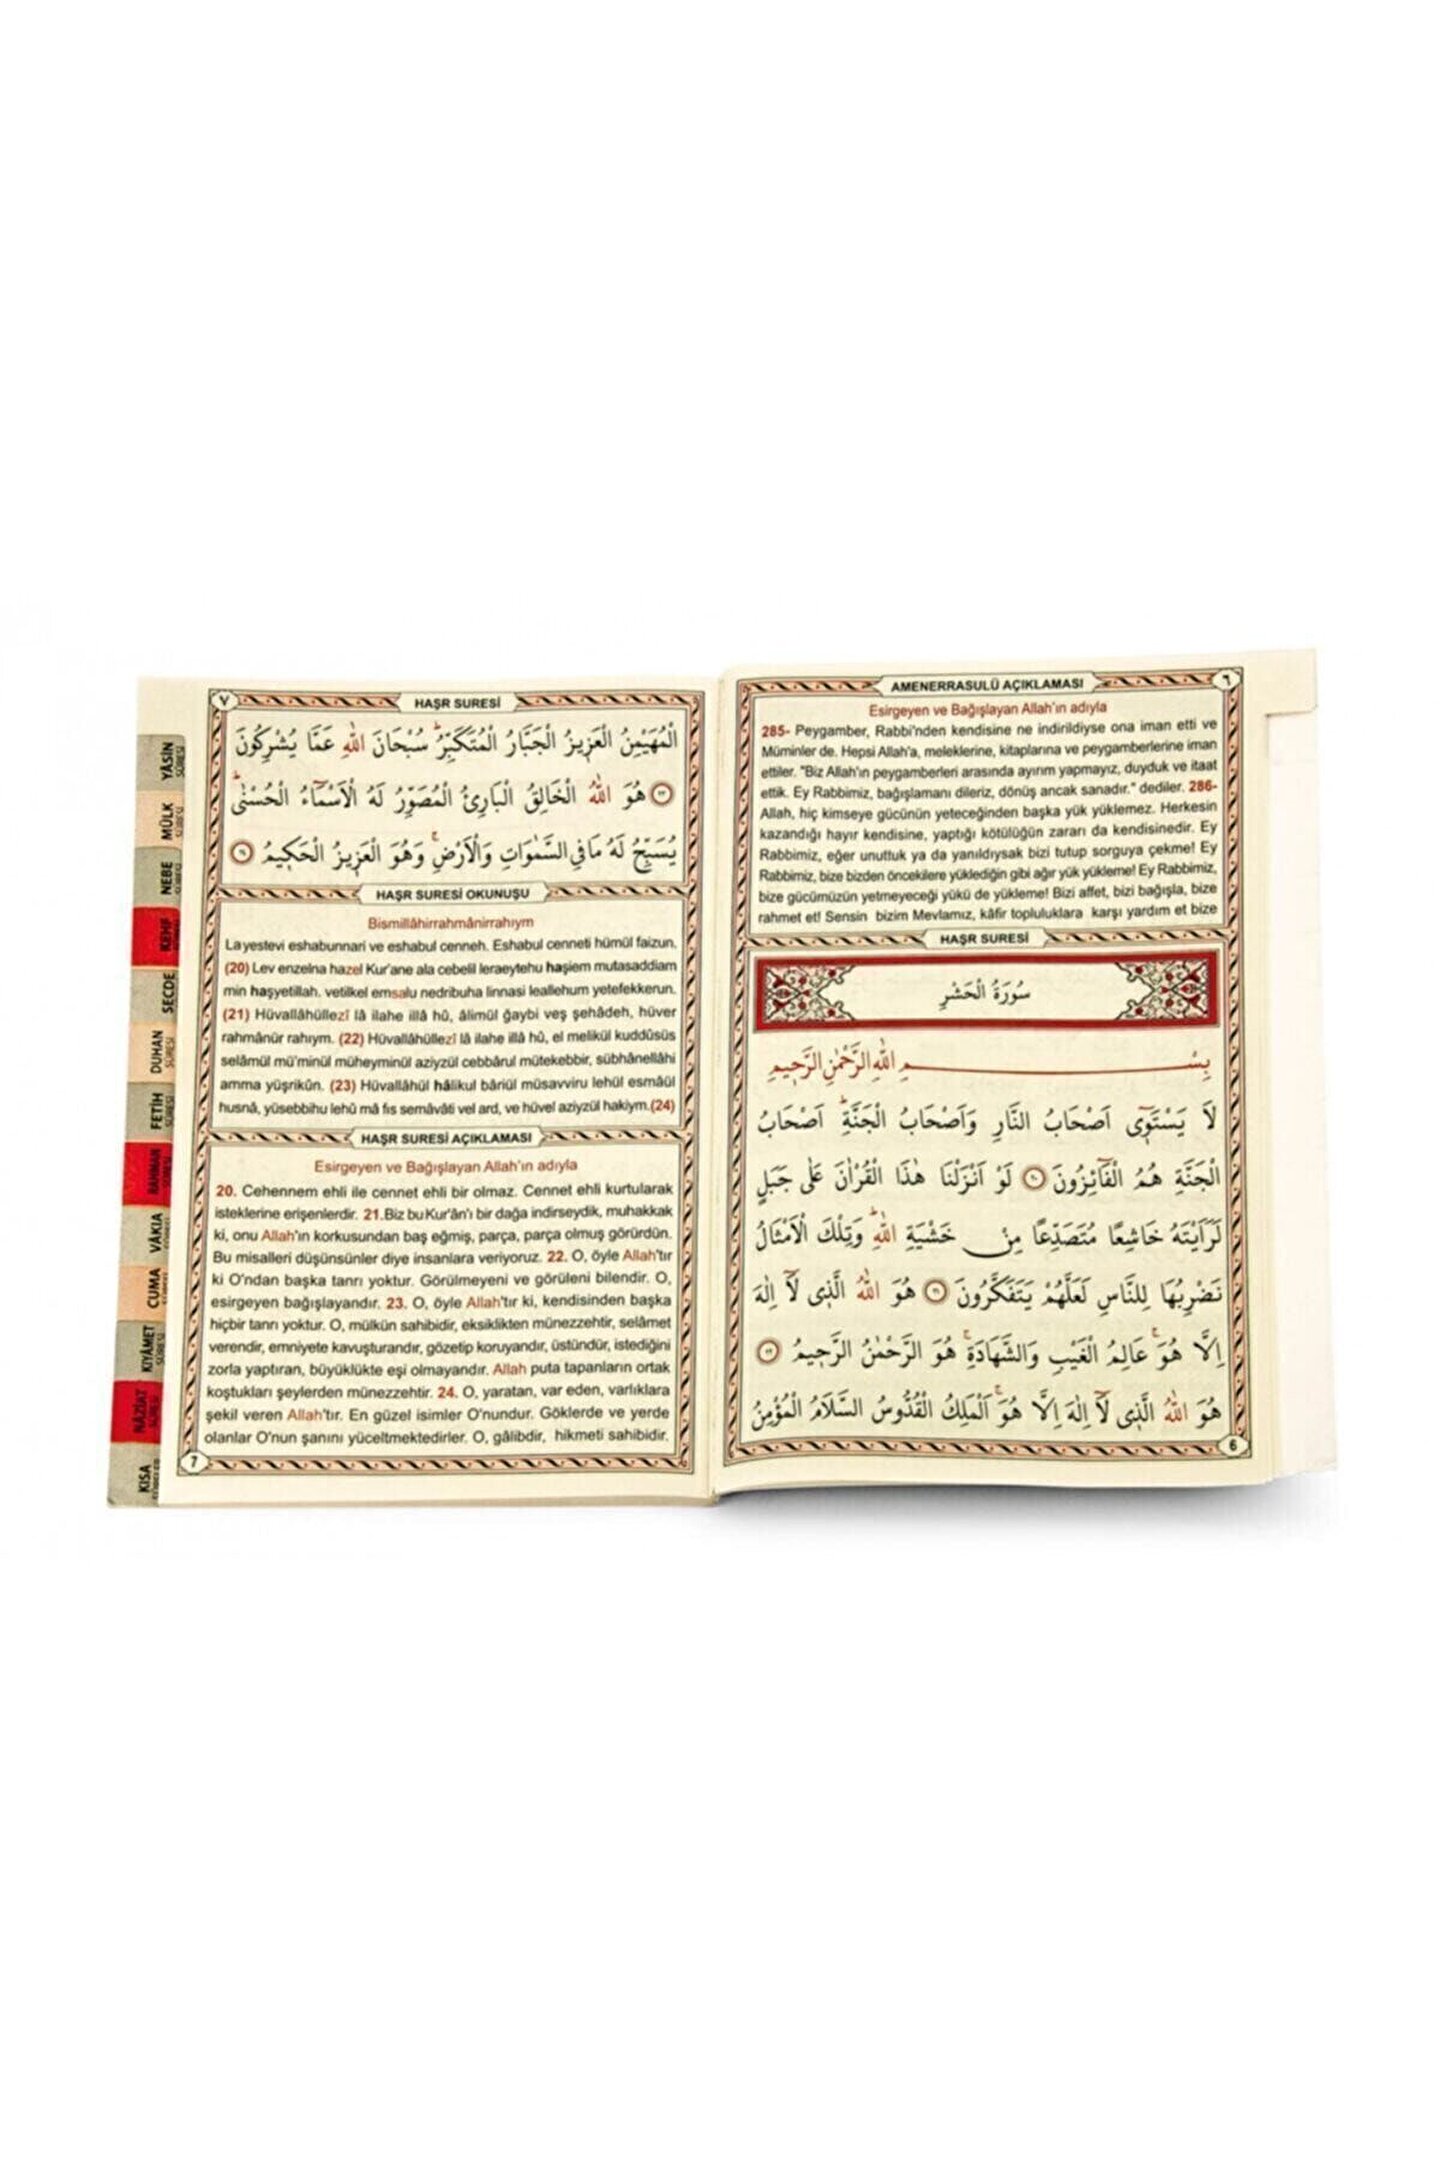 AMENERRASULÜ AÇIKLAMASI
٦
Esirgeyen ve Bağışlayan Allah'ın adıyla
285- Peygamber, Rabbi'nden kendisine ne indirildiyse ona iman etti ve
Müminler de. Hepsi Allah'a, meleklerine, kitaplarına ve peygamberlerine iman
ettiler. "Biz Allah'ın peygamberleri arasında ayırım yapmayız, duyduk ve itaat
ettik. Ey Rabbimiz, bağışlamanı dileriz, dönüş ancak sanadır." dediler. 286-
Allah, hiç kimseye gücünün yeteceğinden başka yük yüklemez. Herkesin
kazandığı hayır kendisine, yaptığı kötülüğün zararı da kendisinedir. Ey
Rabbimiz, eğer unuttuk ya da yanıldıysak bizi tutup sorguya çekme! Ey
Rabbimiz, bize bizden öncekilere yüklediğin gibi ağır yük yükleme! Ey Rabbimiz,
bize gücümüzün yetmeyeceği yükü de yükleme! Bizi affet, bizi bağışla, bize
rahmet et! Sensin bizim Mevlamız, kâfir topluluklara karşı yardım et bize
HAŞR SURESİ
سُورَةُ الْحَشْرِ
بِسْمِ اللّٰهِ الرَّحْمٰنِ الرَّح۪يمِ
لَا يَسْتَو۪ٓى اَصْحَابُ النَّارِ وَاَصْحَابُ الْجَنَّةِۜ اَصْحَابُ
الْجَنَّةِ هُمُ الْفَٓائِزُونَ ﴿٢٠﴾ لَوْ اَنْزَلْنَا هٰذَا الْقُرْاٰنَ عَلٰى جَبَلٍ
لَرَاَيْتَهُ خَاشِعًا مُتَصَدِّعًا مِنْ خَشْيَةِ اللّٰهِۜ وَتِلْكَ الْاَمْثَالُ
نَضْرِبُهَا لِلنَّاسِ لَعَلَّهُمْ يَتَفَكَّرُونَ ﴿٢١﴾ هُوَ اللّٰهُ الَّذ۪ى لَٓا اِلٰهَ
اِلَّا هُوَۚ عَالِمُ الْغَيْبِ وَالشَّهَادَةِۚ هُوَ الرَّحْمٰنُ الرَّح۪يمُ ﴿٢٢﴾
هُوَ اللّٰهُ الَّذ۪ى لَٓا اِلٰهَ اِلَّا هُوَۚ اَلْمَلِكُ الْقُدُّوسُ السَّلَامُ الْمُؤْمِنُ
6
٧
HAŞR SURESİ
الْمُهَيْمِنُ الْعَز۪يزُ الْجَبَّارُ الْمُتَكَبِّرُۜ سُبْحَانَ اللّٰهِ عَمَّا يُشْرِكُونَ
﴿٢٣﴾ هُوَ اللّٰهُ الْخَالِقُ الْبَارِئُ الْمُصَوِّرُ لَهُ الْاَسْمَٓاءُ الْحُسْنٰىۜ
يُسَبِّحُ لَهُ مَا فِى السَّمٰوَاتِ وَالْاَرْضِۚ وَهُوَ الْعَز۪يزُ الْحَك۪يمُ
HAŞR SURESİ OKUNUŞU
Bismillâhirrahmânirrahıym
La yestevi eshabunnari ve eshabul cenneh. Eshabul cenneti hümül faizun.
(20) Lev enzelna hazel Kur'ane ala cebelil leraeytehu haşiem mutasaddiam
min haşyetillah. vetilkel emsalu nedribuha linnasi leallehum yetefekkerun.
(21) Hüvallâhüllezî lâ ilahe illâ hû, âlimül ğaybi veş şehâdeh, hüver
rahmânür rahıym. (22) Hüvallâhüllezî lâ ilahe illâ hû, el melikül kuddûsüs
selâmül mü'minül müheyminül aziyzül cebbârul mütekebbir, sübhânellâhi
amma yüşrikûn. (23) Hüvallâhül hâlikul bâriül müsavviru lehül esmâül
husnâ, yüsebbihu lehû mâ fıs semâvâti vel ard, ve hüvel aziyzül hakiym.(24)
HAŞR SURESİ AÇIKLAMASI
Esirgeyen ve Bağışlayan Allah'ın adıyla
20. Cehennem ehli ile cennet ehli bir olmaz. Cennet ehli kurtularak
isteklerine erişenlerdir. 21.Biz bu Kur'ân'ı bir dağa indirseydik, muhakkak
ki, onu Allah'ın korkusundan baş eğmiş, parça, parça olmuş görürdün.
Bu misalleri düşünsünler diye insanlara veriyoruz. 22. O, öyle Allah'tır
ki O'ndan başka tanrı yoktur. Görülmeyeni ve görüleni bilendir. O,
esirgeyen bağışlayandır. 23. O, öyle Allah'tır ki, kendisinden başka
hiçbir tanrı yoktur. O, mülkün sahibidir, eksiklikten münezzehtir, selâmet
verendir, emniyete kavuşturandır, gözetip koruyandır, üstündür, istediğini
zorla yaptıran, büyüklükte eşi olmayandır. Allah puta tapanların ortak
koştukları şeylerden münezzehtir. 24. O, yaratan, var eden, varlıklara
şekil veren Allah'tır. En güzel isimler O'nundur. Göklerde ve yerde
olanlar O'nun şanını yüceltmektedirler. O, gâlibdir, hikmeti sahibidir.
7
YÂSİN
SÛRESİ
MÜLK
SÛRESİ
NEBE
KEHF
SECDE
DUHAN
SÛRESİ
FETİH
SÛRESİ
RAHMAN
SÛRESİ
VÂKIA
CUMA
KIYÂMET
SÛRESİ
NÂZİÂT
SÛRESİ
KISA